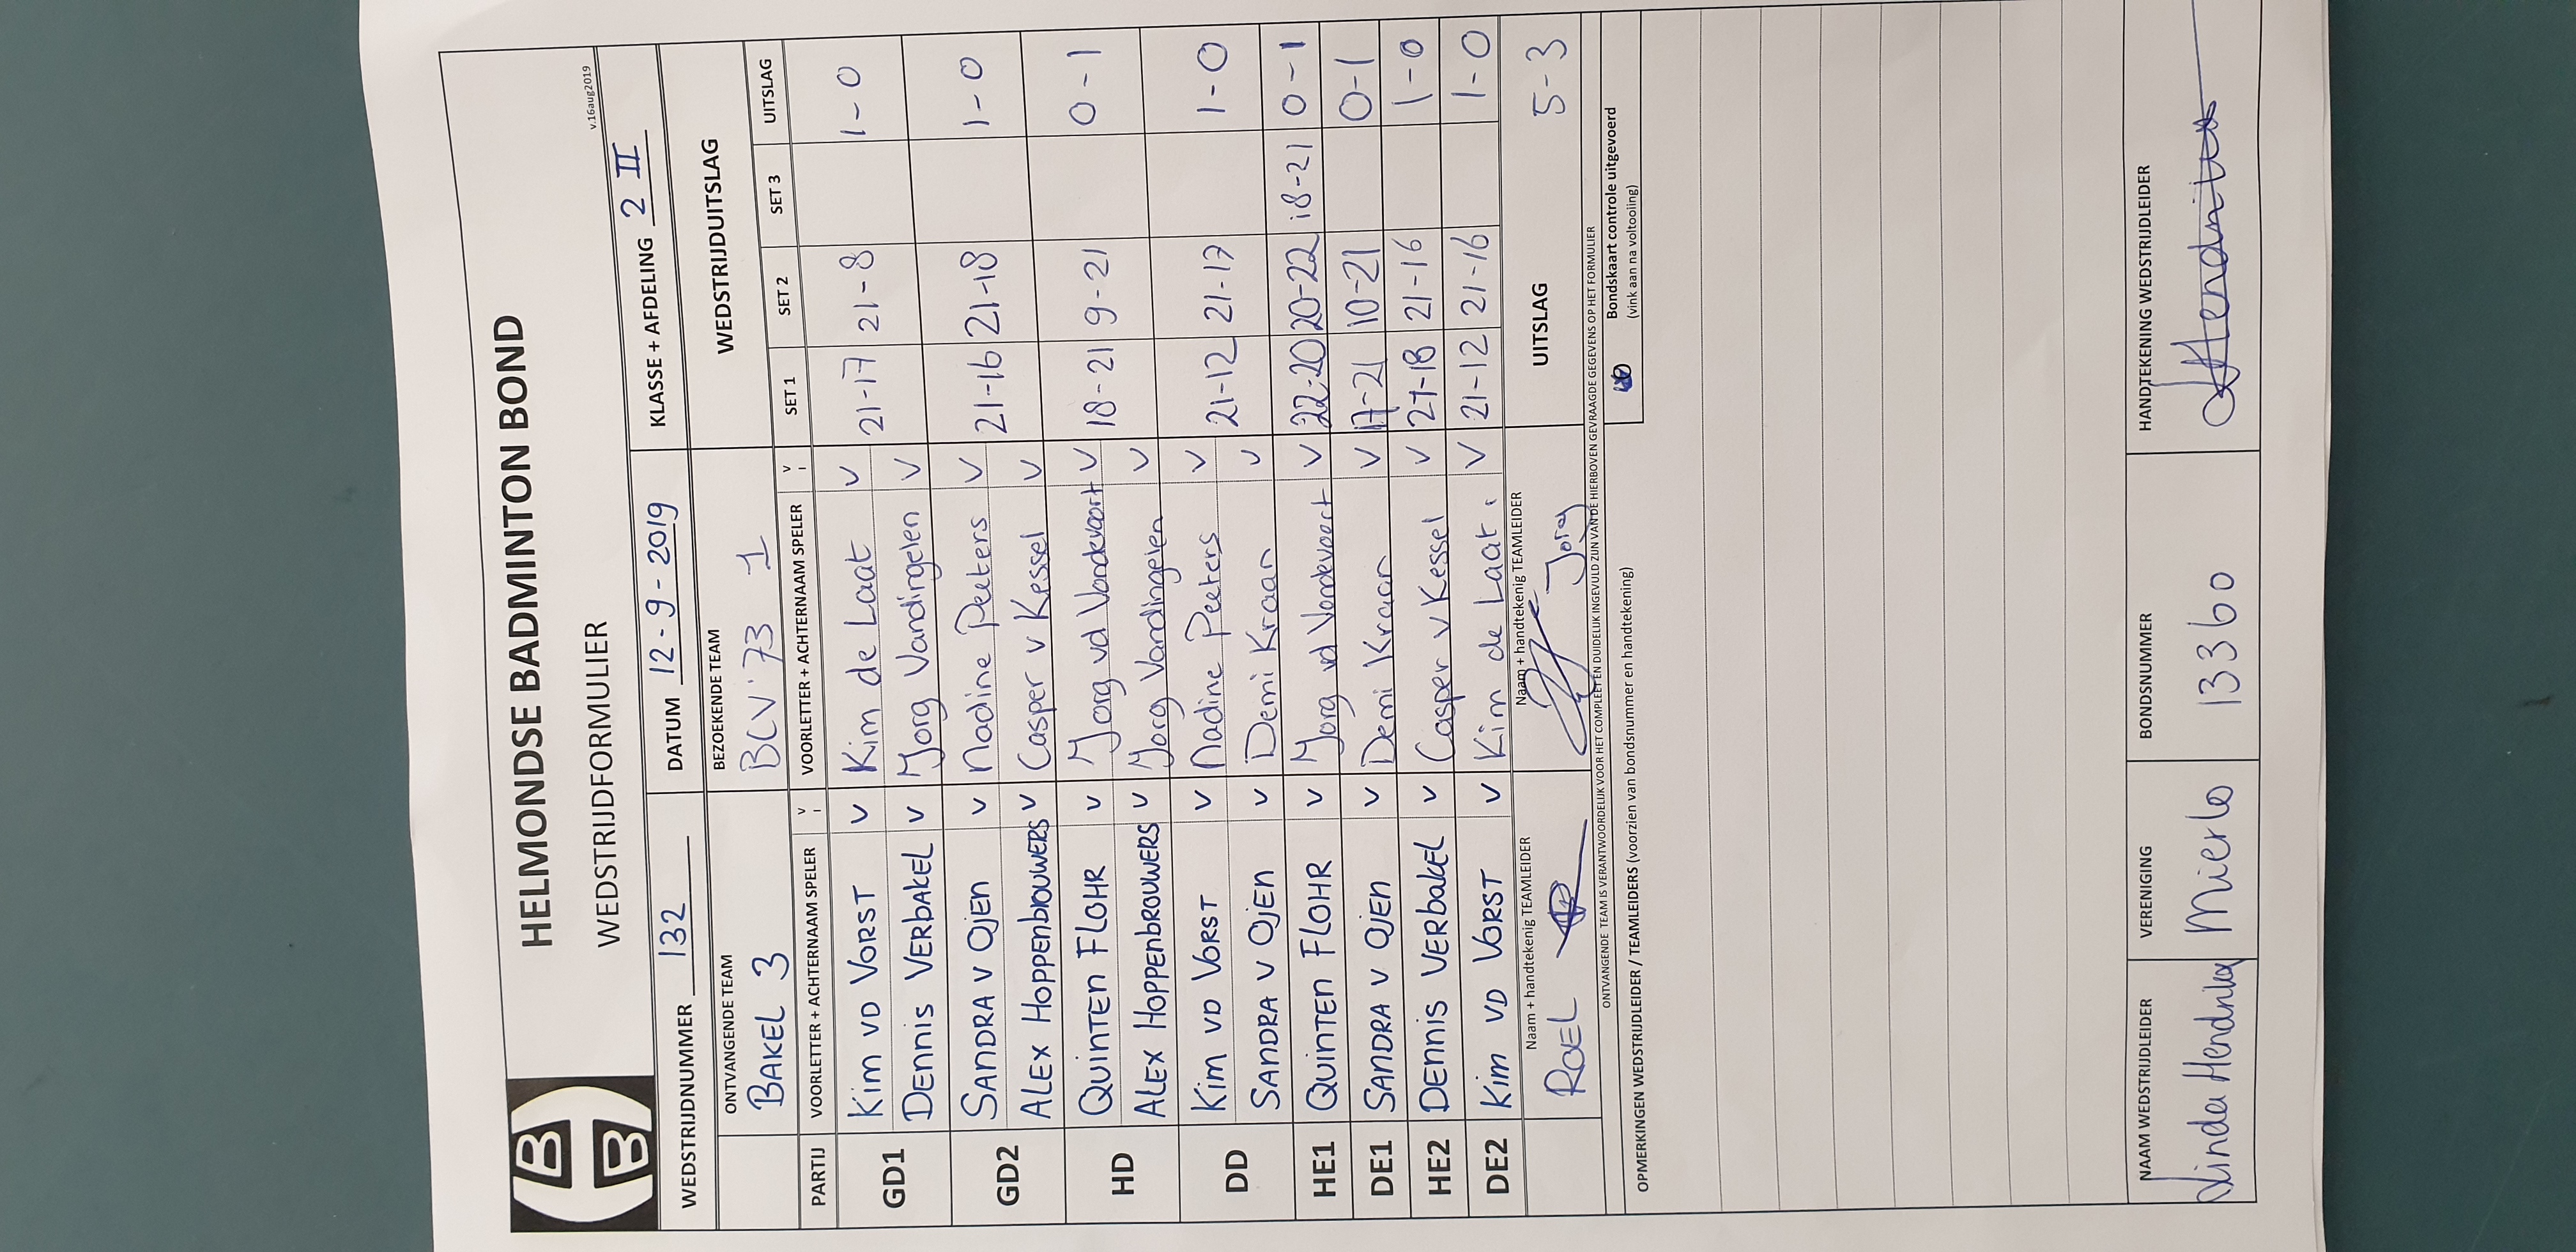 HELMONDSE BADMINTON BOND
WEDSTRIJDFORMULIER
v.16aug2019
WEDSTRIJDNUMMER 132 DATUM 12-9-2019 KLASSE + AFDELING 2 II
ONTVANGENDE TEAM BEZOEKENDE TEAM WEDSTRIJDUITSLAG
BAKEL 3 BCV'73 1
PARTIJ VOORLETTER + ACHTERNAAM SPELER V VOORLETTER + ACHTERNAAM SPELER V SET 1 SET 2 SET 3 UITSLAG
GD1 Kim VD VORST v Kim de Laat v 21-17 21-8 1-0
DENNIS VERbAKEL v Jorg Vandingelen v
GD2 SANDRA V OJEN v Nadine Peeters v 21-16 21-18 1-0
ALEX HOPPENbROUWERS v Casper v Kessel v
HD QUINTEN FLOHR v Jorg vd Vondevoort v 18-21 9-21 0-1
ALEX HOPPENbROUWERS v Jorg Vandingelen v
DD Kim VD VORST v Nadine Peeters v 21-12 21-17 1-0
SANDRA V OJEN v Demi Kraan v
HE1 QUINTEN FLOHR v Jorg vd Vondevoort v 22-20 20-22 18-21 0-1
DE1 SANDRA V OJEN v Demi Kraan v 17-21 10-21 0-1
HE2 DENNIS VERbAKEL v Casper v Kessel v 21-18 21-16 1-0
DE2 Kim VD VORST v Kim de Laat. v 21-12 21-16 1-0
Naam + handtekenig TEAMLEIDER Naam + handtekenig TEAMLEIDER UITSLAG 5-3
ROEL Jorg
ONTVANGENDE TEAM IS VERANTWOORDELIJK VOOR HET COMPLEET EN DUIDELIJK INGEVULD ZIJN VAN DE HIERBOVEN GEVRAAGDE GEGEVENS OP HET FORMULIER
Bondskaart controle uitgevoerd
(vink aan na voltooling)
OPMERKINGEN WEDSTRIJDLEIDER / TEAMLEIDERS (voorzien van bondsnummer en handtekening)
NAAM WEDSTRIJDLEIDER VERENIGING BONDSNUMMER HANDTEKENING WEDSTRIJDLEIDER
Linda Hendrikx Mierlo 13360